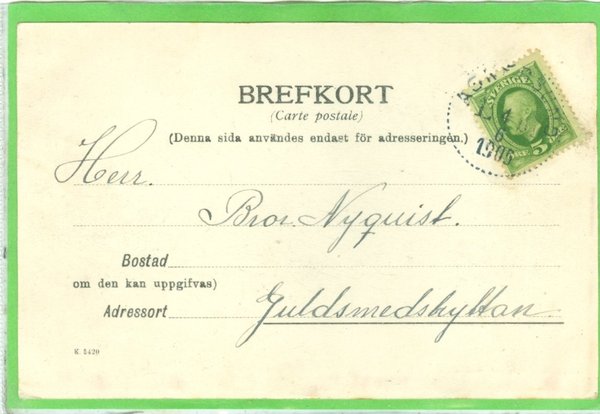 BREFKORT
(Carte postale)
(Denna sida användes endast för adresseringen.)
SVERIGE
5
1906
Herr.
Bror. Nyquist.
Bostad
om den kan uppgifvas)
Adressort Guldsmedshyttan
K. 5420